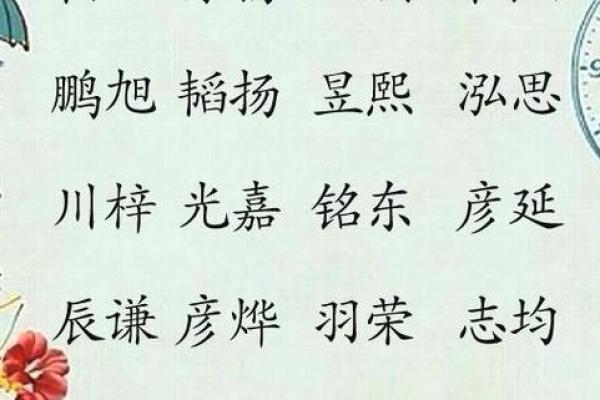 鹏旭 韬扬 昱熙 泓思
川梓 光嘉 铭东 彦延
辰谦 彦烨 羽荣 志均